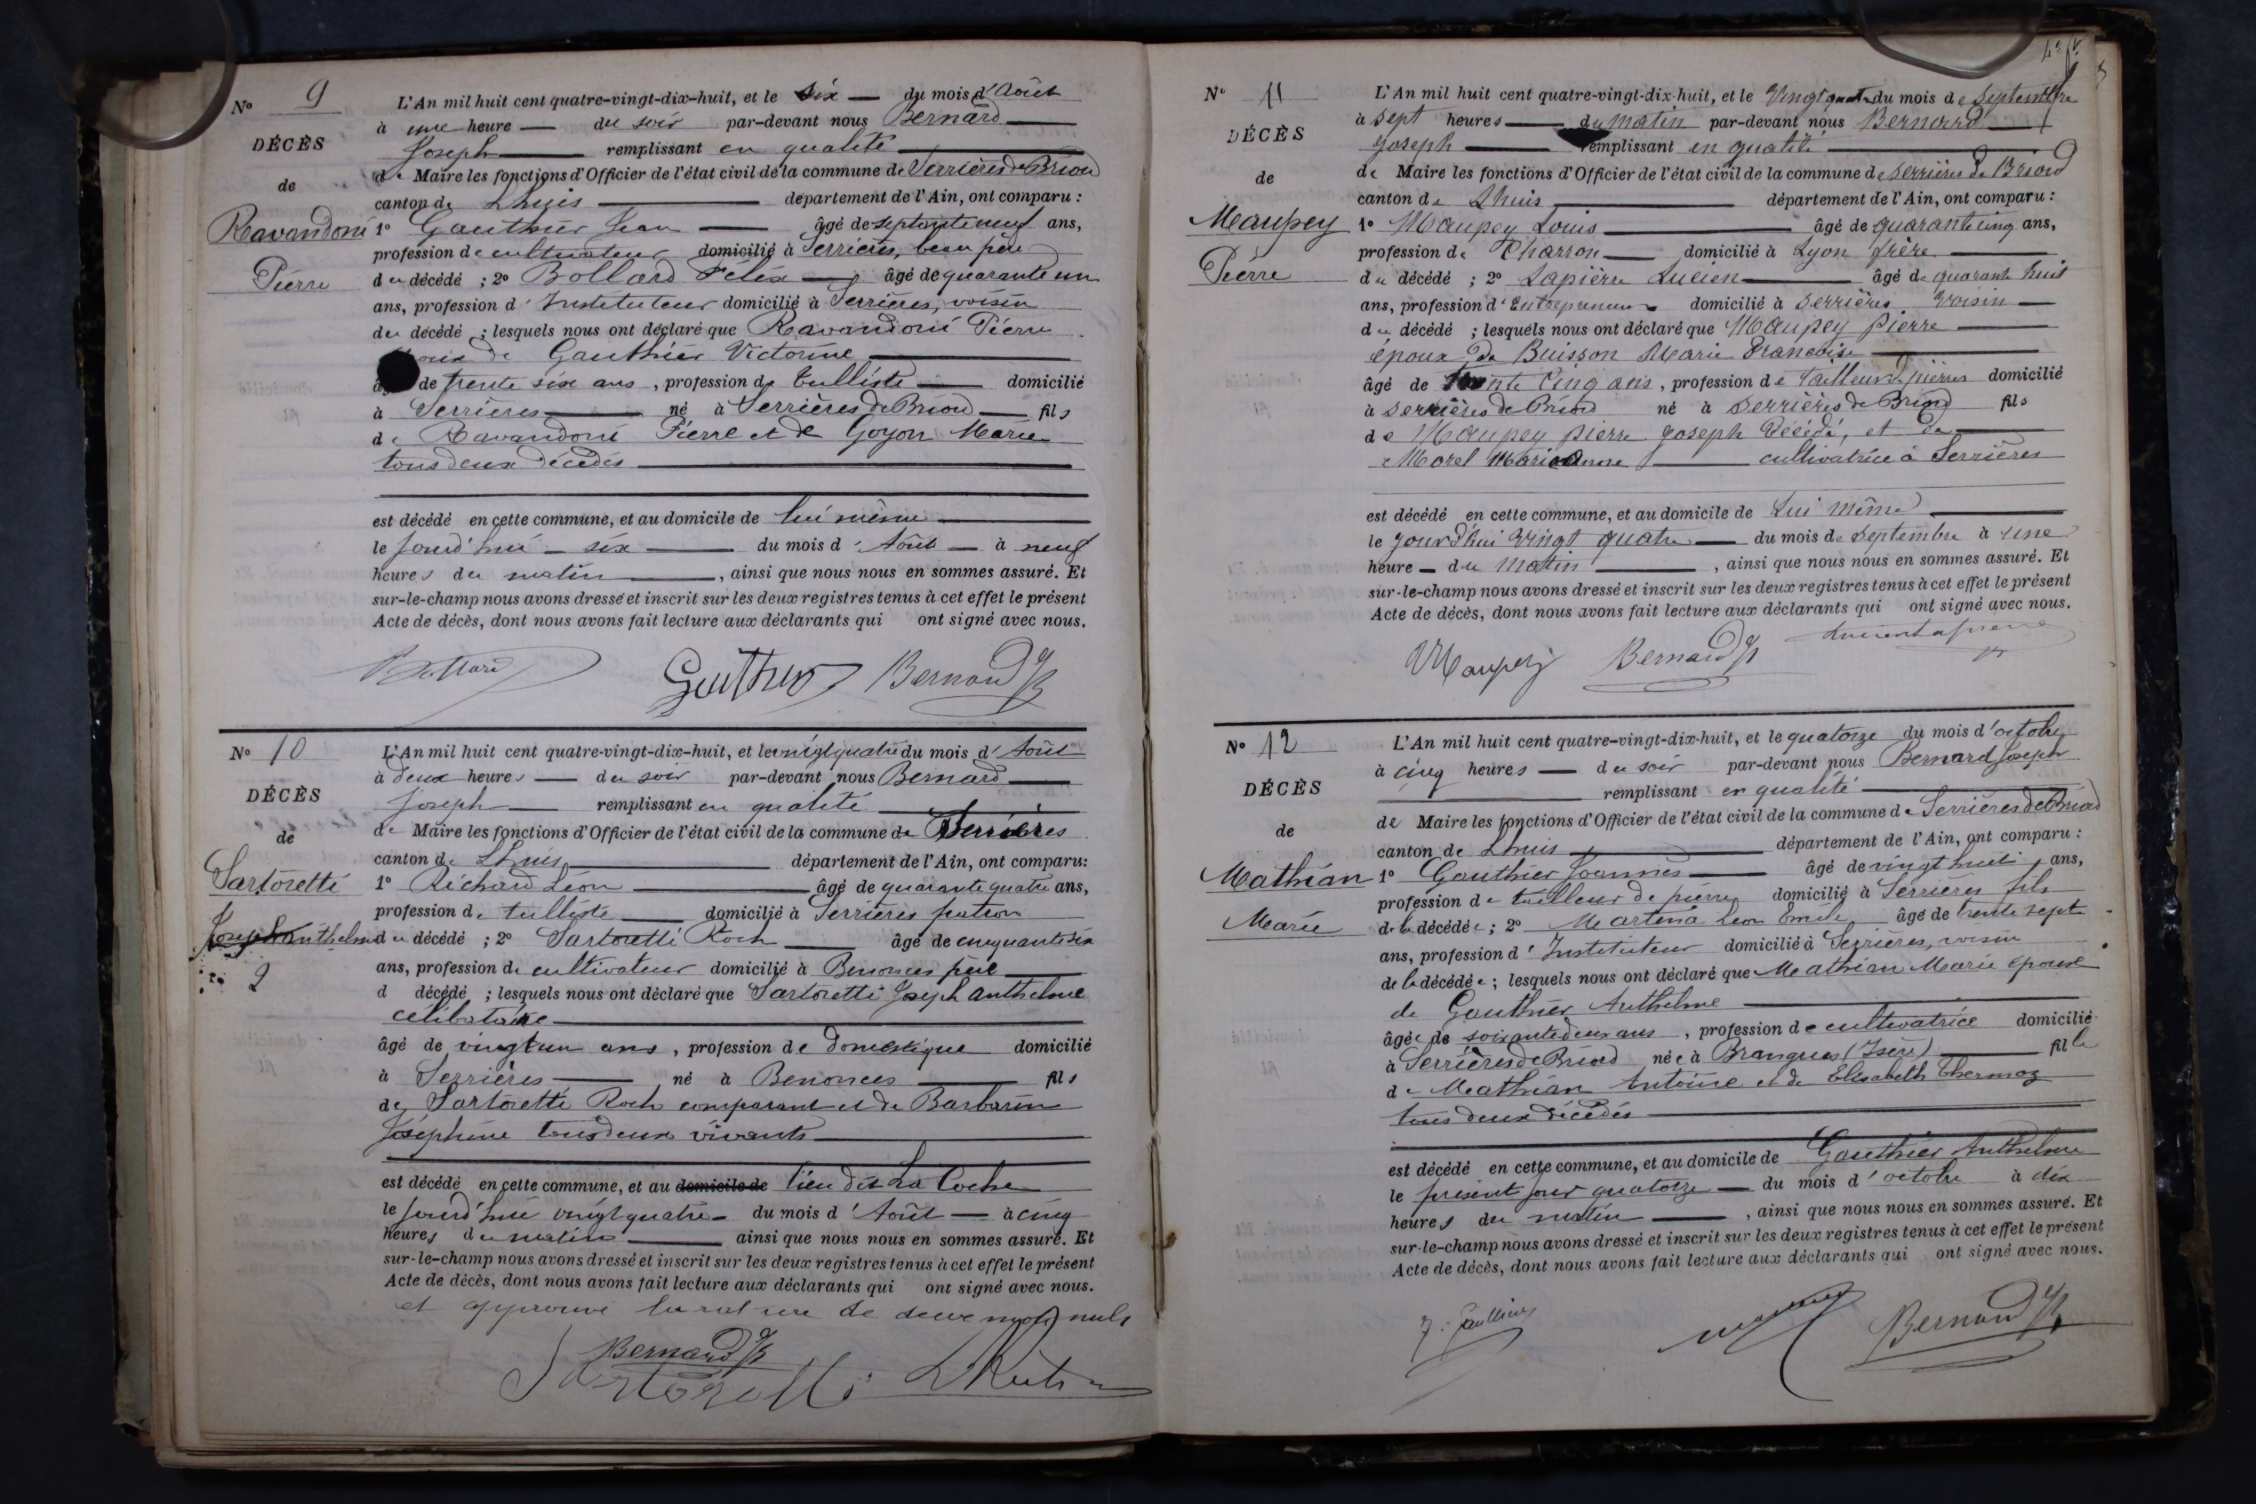 N° 9
DÉCÈS
de
Ravandoni
Pierre
L'An mil huit cent quatre-vingt-dix-huit, et le six du mois d'Août
à une heure du soir par-devant nous Bernard
Joseph remplissant en qualité
de Maire les fonctions d'Officier de l'état civil de la commune de Serrières de Briord
canton de Lhuis département de l'Ain, ont comparu :
1° Gauthier Jean âgé de septante neuf ans,
profession de cultivateur domicilié à Serrières, beau père
du décédé ; 2° Bollard Félix âgé de quarante un
ans, profession d'Instituteur domicilié à Serrières, voisin
du décédé ; lesquels nous ont déclaré que Ravandoni Pierre
de Gauthier Victorine
de trente six ans, profession de tulliste domicilié
à Serrières né à Serrières de Briord fils
de Ravandoni Pierre et de Goyon Marie
tous deux décédés
est décédé en cette commune, et au domicile de lui même
le jourd'hui six du mois d'Août à neuf
heures du matin, ainsi que nous nous en sommes assuré. Et
sur-le-champ nous avons dressé et inscrit sur les deux registres tenus à cet effet le présent
Acte de décès, dont nous avons fait lecture aux déclarants qui ont signé avec nous.
Bollard Gauthier Bernard J
N° 10
DÉCÈS
de
Sartoretti
Joseph Anthelme
2
L'An mil huit cent quatre-vingt-dix-huit, et le vingt quatre du mois d'Août
à deux heures du soir par-devant nous Bernard
Joseph remplissant en qualité
de Maire les fonctions d'Officier de l'état civil de la commune de Serrières
canton de Lhuis département de l'Ain, ont comparu:
1° Richard Léon âgé de quarante quatre ans,
profession de tulliste domicilié à Serrières patron
du décédé ; 2° Sartoretti Roch âgé de cinquante six
ans, profession de cultivateur domicilié à Benonces père
d décédé ; lesquels nous ont déclaré que Sartoretti Joseph Anthelme
célibataire
âgé de vingt un ans, profession de domestique domicilié
à Serrières né à Benonces fils
de Sartoretti Roch comparant et de Barbarin
Joséphine tous deux vivants
est décédé en cette commune, et au domicile de lieu dit La Coche
le jourd'hui vingt quatre du mois d'Août à cinq
heures du matin ainsi que nous nous en sommes assuré. Et
sur-le-champ nous avons dressé et inscrit sur les deux registres tenus à cet effet le présent
Acte de décès, dont nous avons fait lecture aux déclarants qui ont signé avec nous.
et approuvé la rature de deux mots nuls
Bernard J
Sartoretti
N° 11
DÉCÈS
de
Maupey
Pierre
L'An mil huit cent quatre-vingt-dix-huit, et le Vingt quatre du mois de Septembre
à sept heures du matin par-devant nous Bernard
Joseph remplissant en qualité
de Maire les fonctions d'Officier de l'état civil de la commune de Serrières de Briord
canton de Lhuis département de l'Ain, ont comparu :
1° Maupey Louis âgé de quarante cinq ans,
profession de Charron domicilié à Lyon frère
du décédé ; 2° Lapierre Lucien âgé de quarante huit
ans, profession d'Entrepreneur domicilié à Serrières Voisin
du décédé ; lesquels nous ont déclaré que Maupey Pierre
époux de Buisson Marie Françoise
âgé de Trente Cinq ans, profession de Tailleur de pierres domicilié
à Serrières de Briord né à Serrières de Briord fils
de Maupey Pierre Joseph Décédé, et de
Morel Marie Anne cultivatrice à Serrières
est décédé en cette commune, et au domicile de Lui même
le jourd'hui vingt quatre du mois de Septembre à une
heure du Matin, ainsi que nous nous en sommes assuré. Et
sur-le-champ nous avons dressé et inscrit sur les deux registres tenus à cet effet le présent
Acte de décès, dont nous avons fait lecture aux déclarants qui ont signé avec nous.
Maupey Bernard J Lucien Lapierre
N° 12
DÉCÈS
de
Mathian
Marie
L'An mil huit cent quatre-vingt-dix-huit, et le quatorze du mois d'octobre
à cinq heures du soir par-devant nous Bernard Joseph
remplissant en qualité
de Maire les fonctions d'Officier de l'état civil de la commune de Serrières de Briord
canton de Lhuis département de l'Ain, ont comparu :
1° Gauthier Joannès âgé de vingt huit ans,
profession de tailleur de pierres domicilié à Serrières fils
de la décédée ; 2° Martina Léon Emile âgé de trente sept
ans, profession d'Instituteur domicilié à Serrières, voisin
de la décédée ; lesquels nous ont déclaré que Mathian Marie épouse
de Gauthier Anthelme
âgée de soixante deux ans, profession de cultivatrice domicilié
à Serrières de Briord née à Brangues (Isère) fille
de Mathian Antoine et de Elisabeth Thermoz
tous deux décédés
est décédé en cette commune, et au domicile de Gauthier Anthelme
le présent jour quatorze du mois d'octobre à dix
heures du matin, ainsi que nous nous en sommes assuré. Et
sur-le-champ nous avons dressé et inscrit sur les deux registres tenus à cet effet le présent
Acte de décès, dont nous avons fait lecture aux déclarants qui ont signé avec nous.
Bernard J